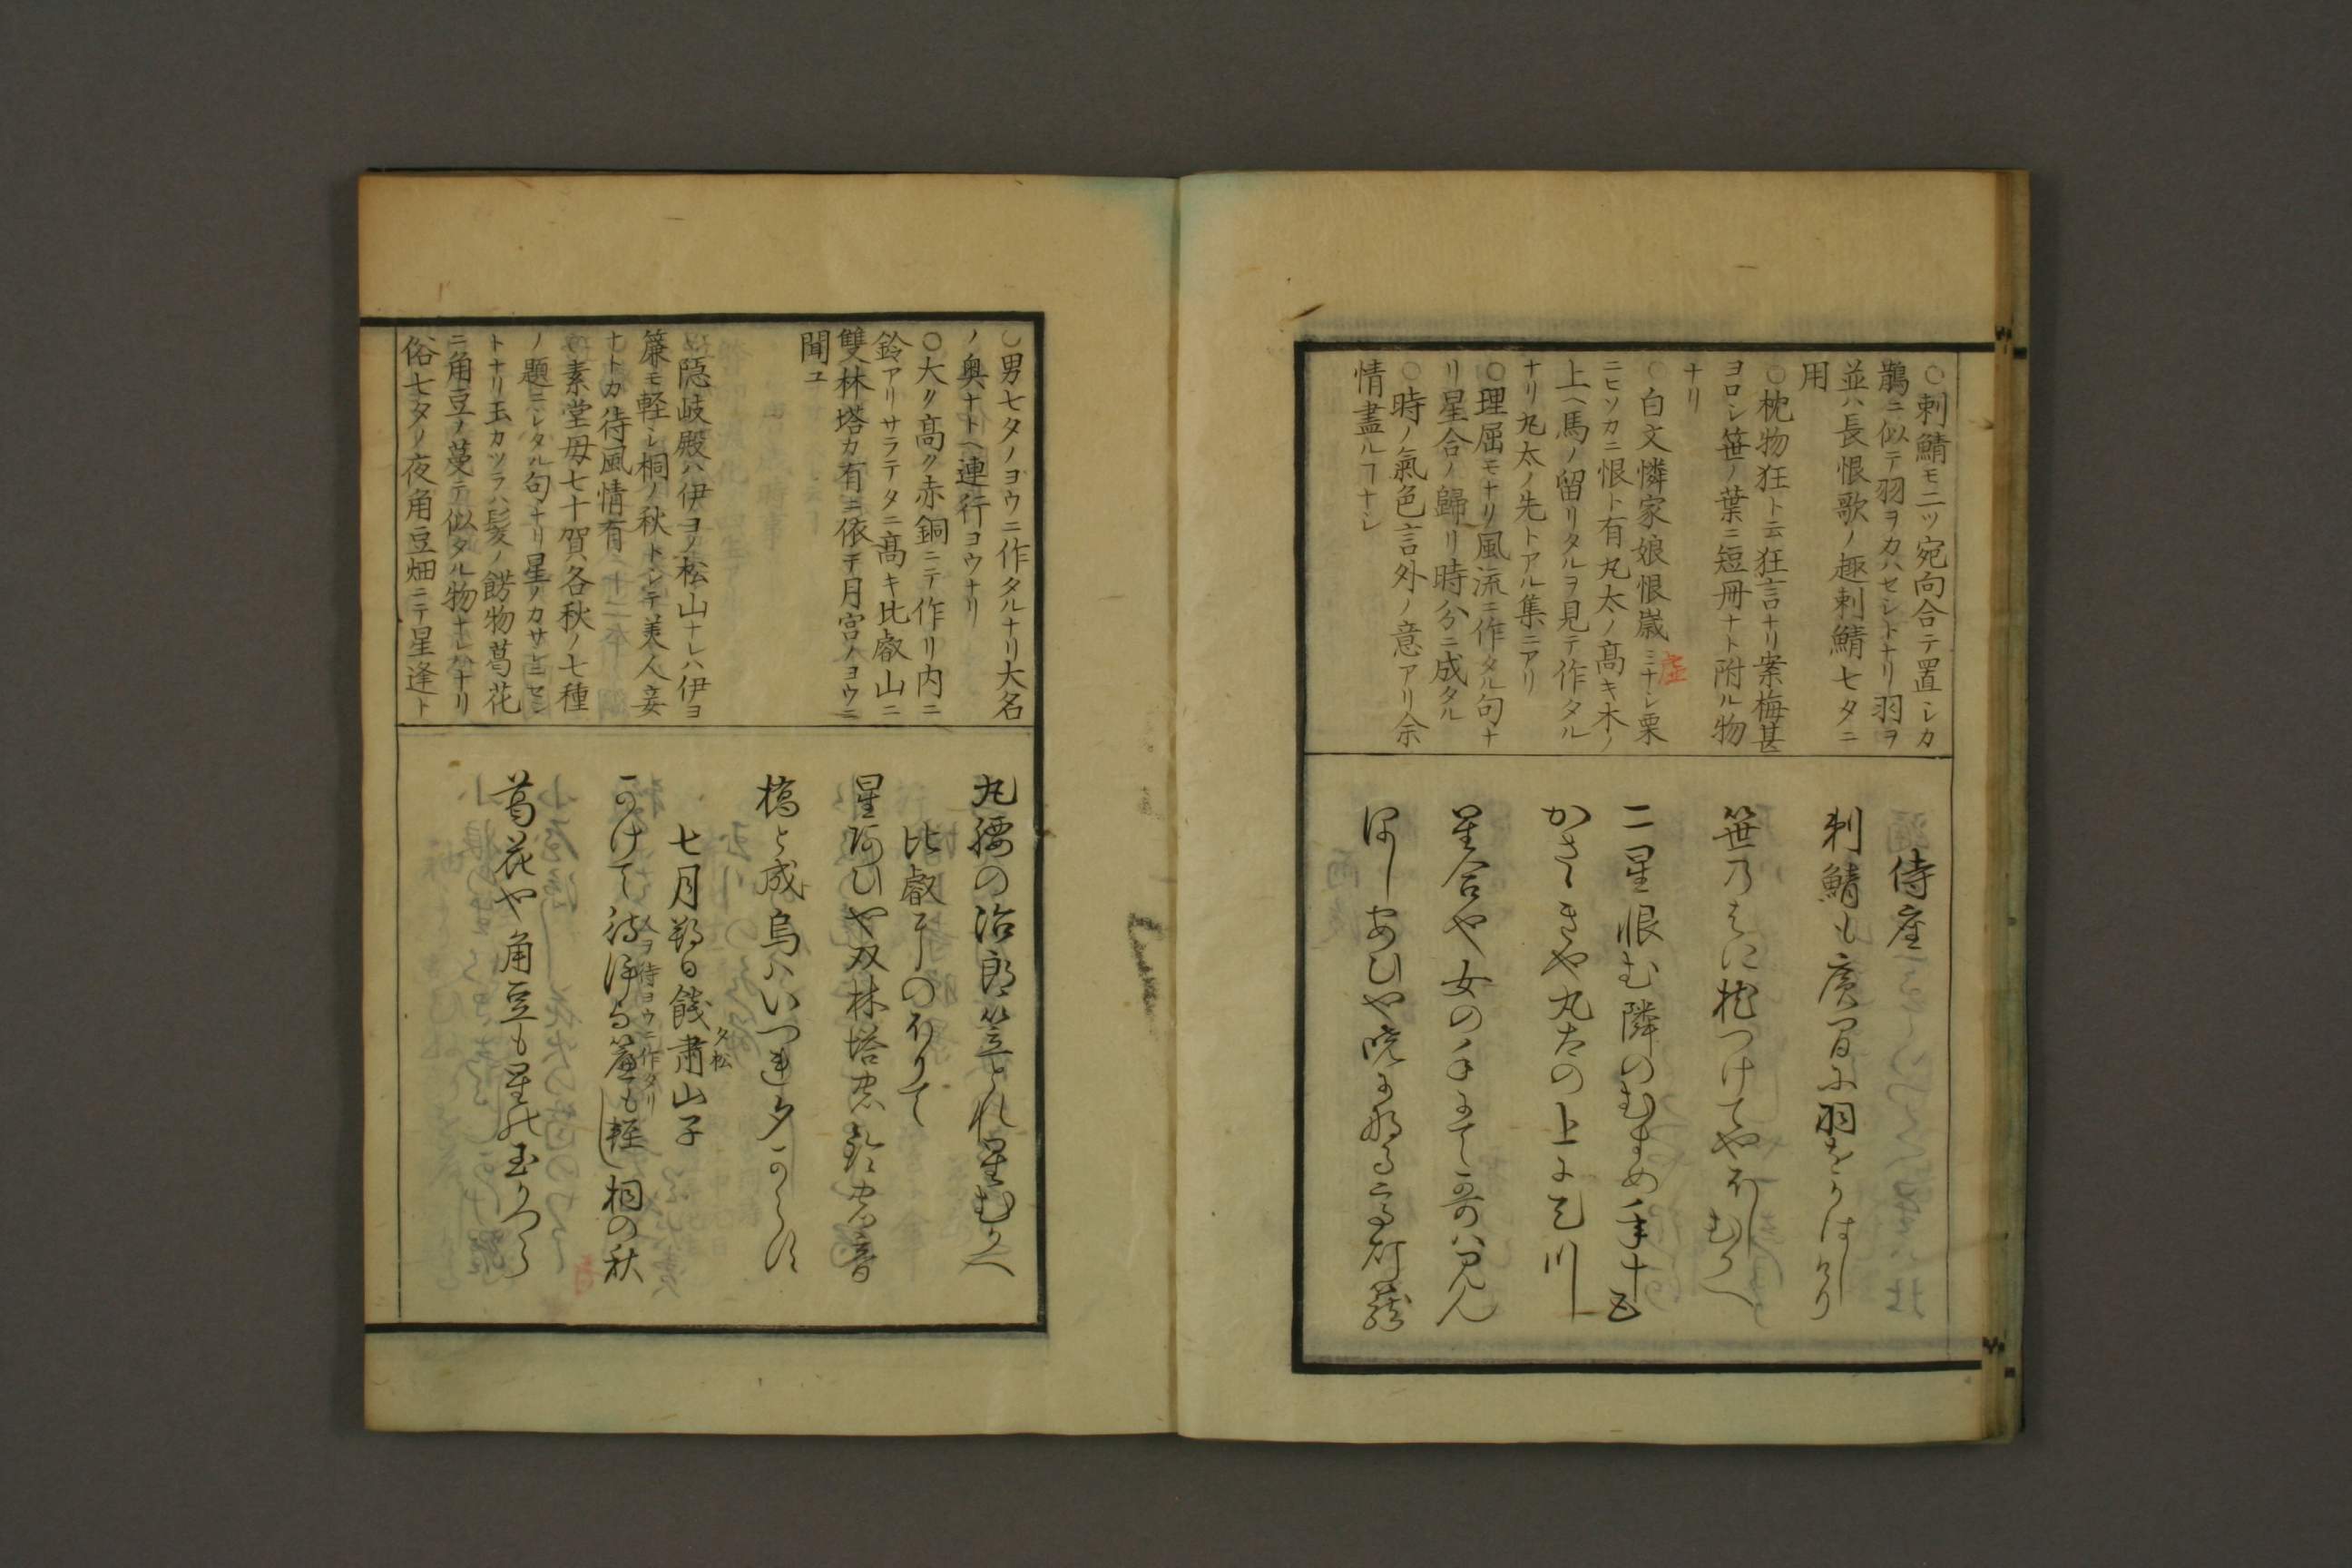 ○刺鯖モ二ツ宛向合テ置シカ
鵲ニ似テ羽ヲカハセシトナリ羽ヲ
並ハ長恨歌ノ趣刺鯖七夕ニ
用
○枕物狂ト云狂言ナリ案梅甚
ヨロシ笹ノ葉ニ短冊ナト附ル物
ナリ
○白文憐家娘恨歳ミナシ栗
虚
ニヒソカニ恨ト有丸太ノ高キ木ノ
上ヘ馬ノ留リタルヲ見テ作タル
ナリ丸太ノ先トアル集ニアリ
○理屈モナリ風流ニ作タル句ナ
リ星合ノ歸リ時分ニ成タル
○時ノ氣色言外ノ意アリ余
情盡ルヿナシ
侍座
刺鯖も廣間に羽をかはしけり
笹のはに枕つけてやほしむかへ
二星恨む隣のむすめ年十五
かさゝきや丸太の上に天川
星合や女の手にて歌は見ん
ほしあひや暁になる高灯籠
○男七夕ノヨウニ作タルナリ大名
ノ奥ナトヘ連行ヨウナリ
○大ク高ク赤銅ニテ作リ内ニ
鈴アリサラテタニ高キ比叡山ニ
雙林塔カ有ニ依テ月宮ノヨウニ
聞ユ
○隠岐殿ハ伊ヨノ松山ナレハ伊ヨ
簾モ軽シ桐ノ秋トシテ美人妾
ナトカ待風情有
○素堂母七十賀各秋ノ七種
ノ題ニシタル句ナリ星ノカサシニセン
トナリ玉カツラハ髪ノ餝物葛花
ニ角豆ノ蔓テ似タル物ナレハナリ
俗七夕ノ夜角豆畑ニテ星逢ト
丸腰の治郎笠とれ星むかへ
比叡にのほりて
星あひや双林塔の鈴の音
橋と成烏はいつれ夕からす
七月朔日餞肅山子
久松
かけて待伊与簾も軽し桐の秋
人ヲ待ヨウニ作タリ
葛花や角豆も星の玉かつら